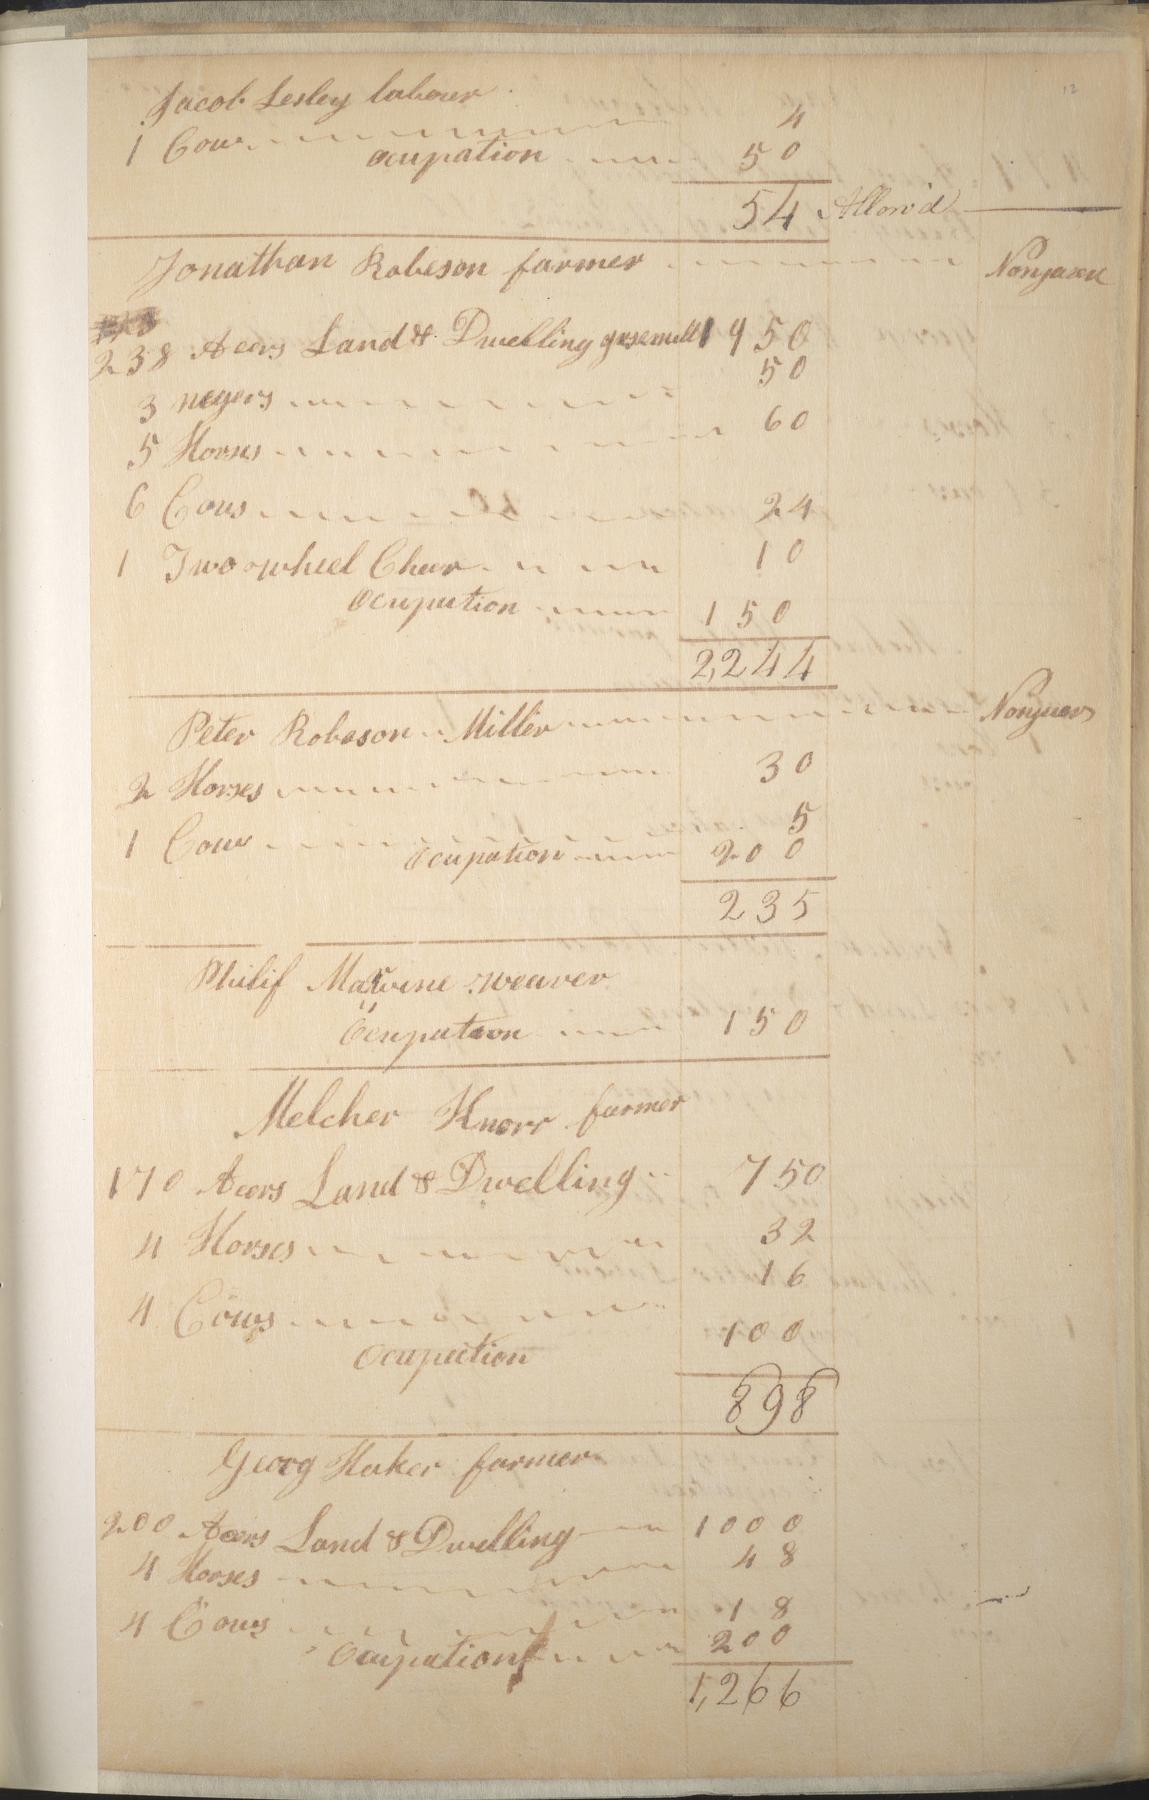 12
Jacob Lesley labourer
1 Cow 4
ocupation 50
54 Allow'd
Jonathan Robeson farmer Nonjuror
238 Acers Land & Dwelling gresemill 1950
3 negers 50
5 Horses 60
6 Cows 24
1 Two wheel Cheer 10
Ocupation 150
2,244
Peter Robeson Miller Nonjuors
2 Horses 30
1 Cow 5
Ocupation 200
235
Philif Marvine weaver
Ocupation 150
Melcher Knorr farmer
170 Acers Land & Dwelling 750
4 Horses 32
4 Cows 16
Ocupation 100
898
Georg Haker farmer
200 Acers Land & Dwelling 1000
4 Horses 48
4 Cows 18
Ocupation 200
1,266